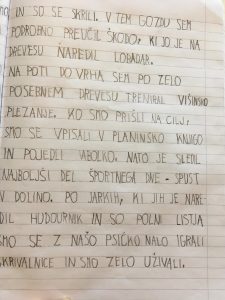 IN SO SE SKRILI. V TEM GOZDU SEM
PODROBNO PREUČIL ŠKODO, KI JO JE NA
DREVESU NAREDIL LUBADAR.
NA POTI DO VRHA SEM PO ZELO
POSEBNEM DREVESU TRENIRAL VIŠINSKO
PLEZANJE. KO SMO PRIŠLI NA CILJ,
SMO SE VPISALI V PLANINSKO KNJIGO
IN POJEDLI JABOLKO. NATO JE SLEDIL
NAJBOLJŠI DEL ŠPORTNEGA DNE - SPUST
V DOLINO. PO JARKIH, KI JIH JE NARE
DIL HUDOURNIK IN SO POLNI LISTJA,
SMO SE Z NAŠO PSIČKO NALO IGRALI
SKRIVALNICE IN SMO ZELO UŽIVALI.